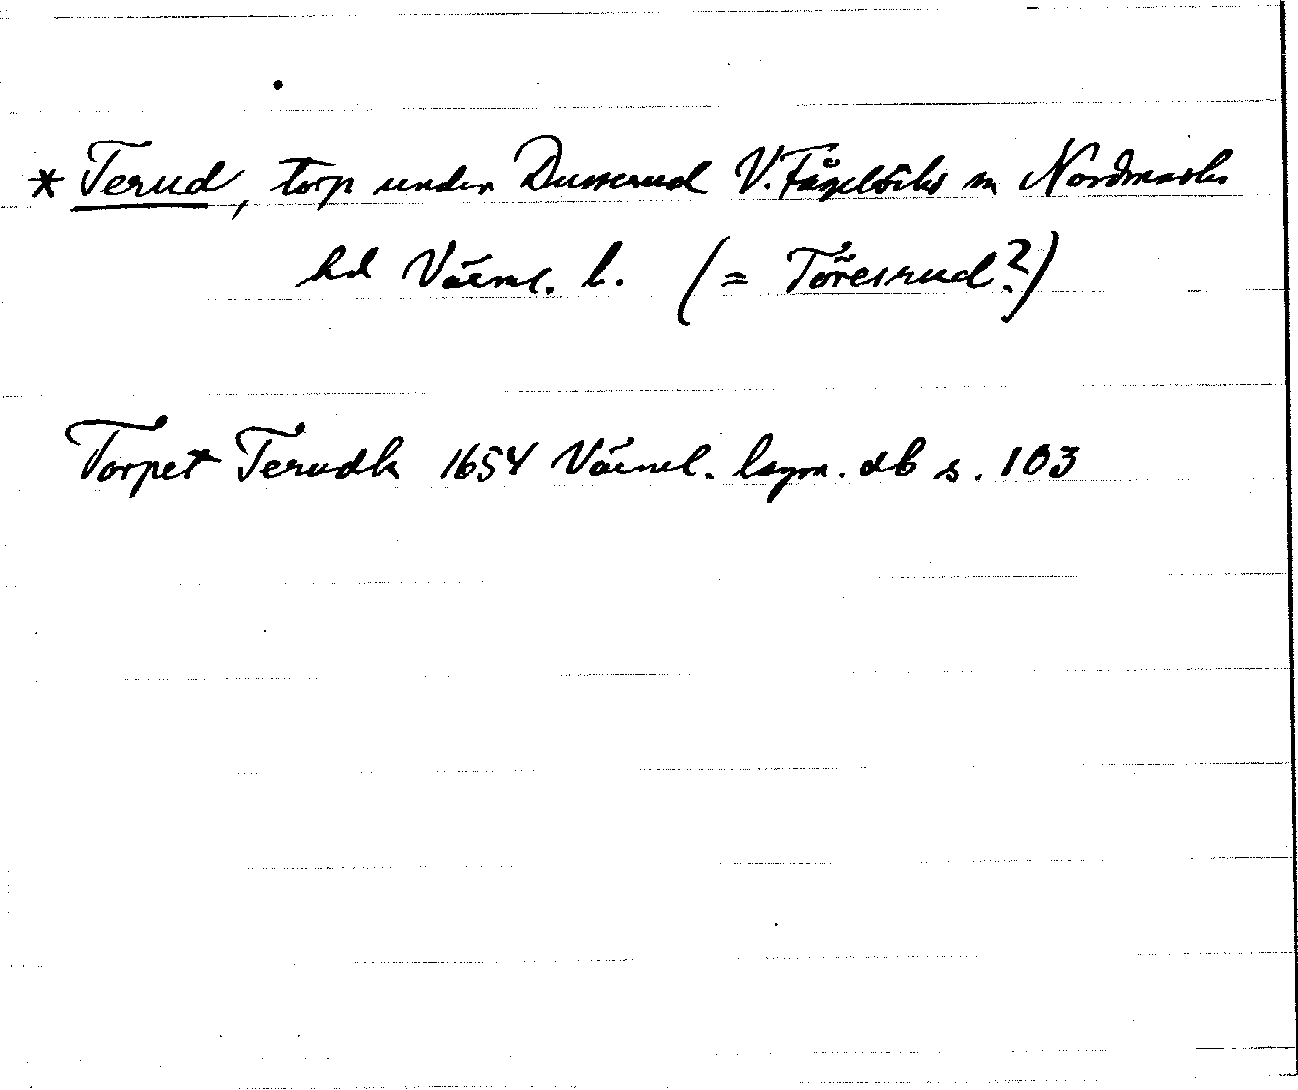 * Terud, torp under Dusserud V. Fågelviks sn Nordmarks
hd Värml. l. (= Töresrud?)
Torpet Terudh 1654 Värml. lagm. db s. 103